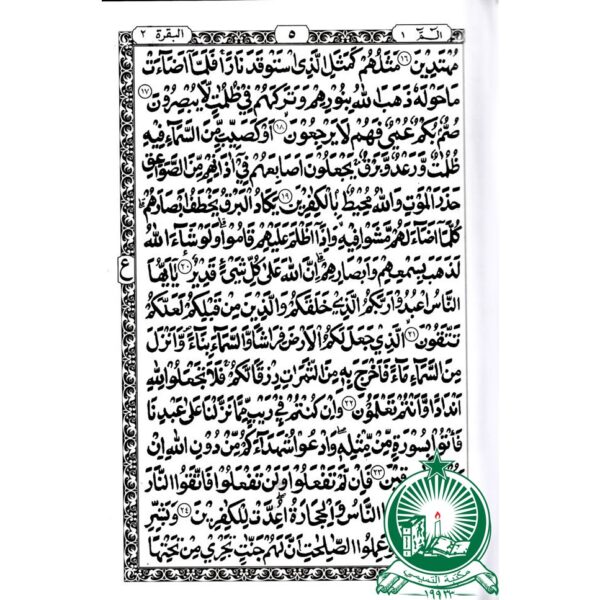 الٓمّٓ ١
٥
البقرة ٢
مُهْتَدِيْنَ ﴿١٦﴾ مَثَلُهُمْ كَمَثَلِ الَّذِي اسْتَوْقَدَ نَارًا ۚ فَلَمَّاۤ اَضَآءَتْ
مَا حَوْلَهٗ ذَهَبَ اللّٰهُ بِنُوْرِهِمْ وَتَرَكَهُمْ فِيْ ظُلُمٰتٍ لَّا يُبْصِرُوْنَ ﴿١٧﴾
صُمٌّۢ بُكْمٌ عُمْيٌ فَهُمْ لَا يَرْجِعُوْنَ ﴿١٨﴾ اَوْ كَصَيِّبٍ مِّنَ السَّمَآءِ فِيْهِ
ظُلُمٰتٌ وَّرَعْدٌ وَّبَرْقٌ ۚ يَجْعَلُوْنَ اَصَابِعَهُمْ فِيْۤ اٰذَانِهِمْ مِّنَ الصَّوَاعِقِ
حَذَرَ الْمَوْتِ ؕ وَاللّٰهُ مُحِيْطٌۢ بِالْكٰفِرِيْنَ ﴿١٩﴾ يَكَادُ الْبَرْقُ يَخْطَفُ اَبْصَارَهُمْ ؕ
كُلَّمَاۤ اَضَآءَ لَهُمْ مَّشَوْا فِيْهِ ۙ وَاِذَاۤ اَظْلَمَ عَلَيْهِمْ قَامُوْا ؕ وَلَوْ شَآءَ اللّٰهُ
لَذَهَبَ بِسَمْعِهِمْ وَاَبْصَارِهِمْ ؕ اِنَّ اللّٰهَ عَلٰى كُلِّ شَيْءٍ قَدِيْرٌ ﴿٢٠﴾ يٰۤاَيُّهَا
ع
النَّاسُ اعْبُدُوْا رَبَّكُمُ الَّذِيْ خَلَقَكُمْ وَالَّذِيْنَ مِنْ قَبْلِكُمْ لَعَلَّكُمْ
تَتَّقُوْنَ ﴿٢١﴾ الَّذِيْ جَعَلَ لَكُمُ الْاَرْضَ فِرَاشًا وَّالسَّمَآءَ بِنَآءً ۪ وَّاَنْزَلَ
مِنَ السَّمَآءِ مَآءً فَاَخْرَجَ بِهٖ مِنَ الثَّمَرٰتِ رِزْقًا لَّكُمْ ۚ فَلَا تَجْعَلُوْا لِلّٰهِ
اَنْدَادًا وَّاَنْتُمْ تَعْلَمُوْنَ ﴿٢٢﴾ وَاِنْ كُنْتُمْ فِيْ رَيْبٍ مِّمَّا نَزَّلْنَا عَلٰى عَبْدِنَا
فَاْتُوْا بِسُوْرَةٍ مِّنْ مِّثْلِهٖ ۪ وَادْعُوْا شُهَدَآءَكُمْ مِّنْ دُوْنِ اللّٰهِ اِنْ
قِيْنَ ﴿٢٣﴾ فَاِنْ لَّمْ تَفْعَلُوْا وَلَنْ تَفْعَلُوْا فَاتَّقُوا النَّارَ
النَّاسُ وَالْحِجَارَةُ ۖۚ اُعِدَّتْ لِلْكٰفِرِيْنَ ﴿٢٤﴾ وَبَشِّرِ
وَعَمِلُوا الصّٰلِحٰتِ اَنَّ لَهُمْ جَنّٰتٍ تَجْرِيْ مِنْ تَحْتِهَا
مكتبة النعيمي
١٩٩٣